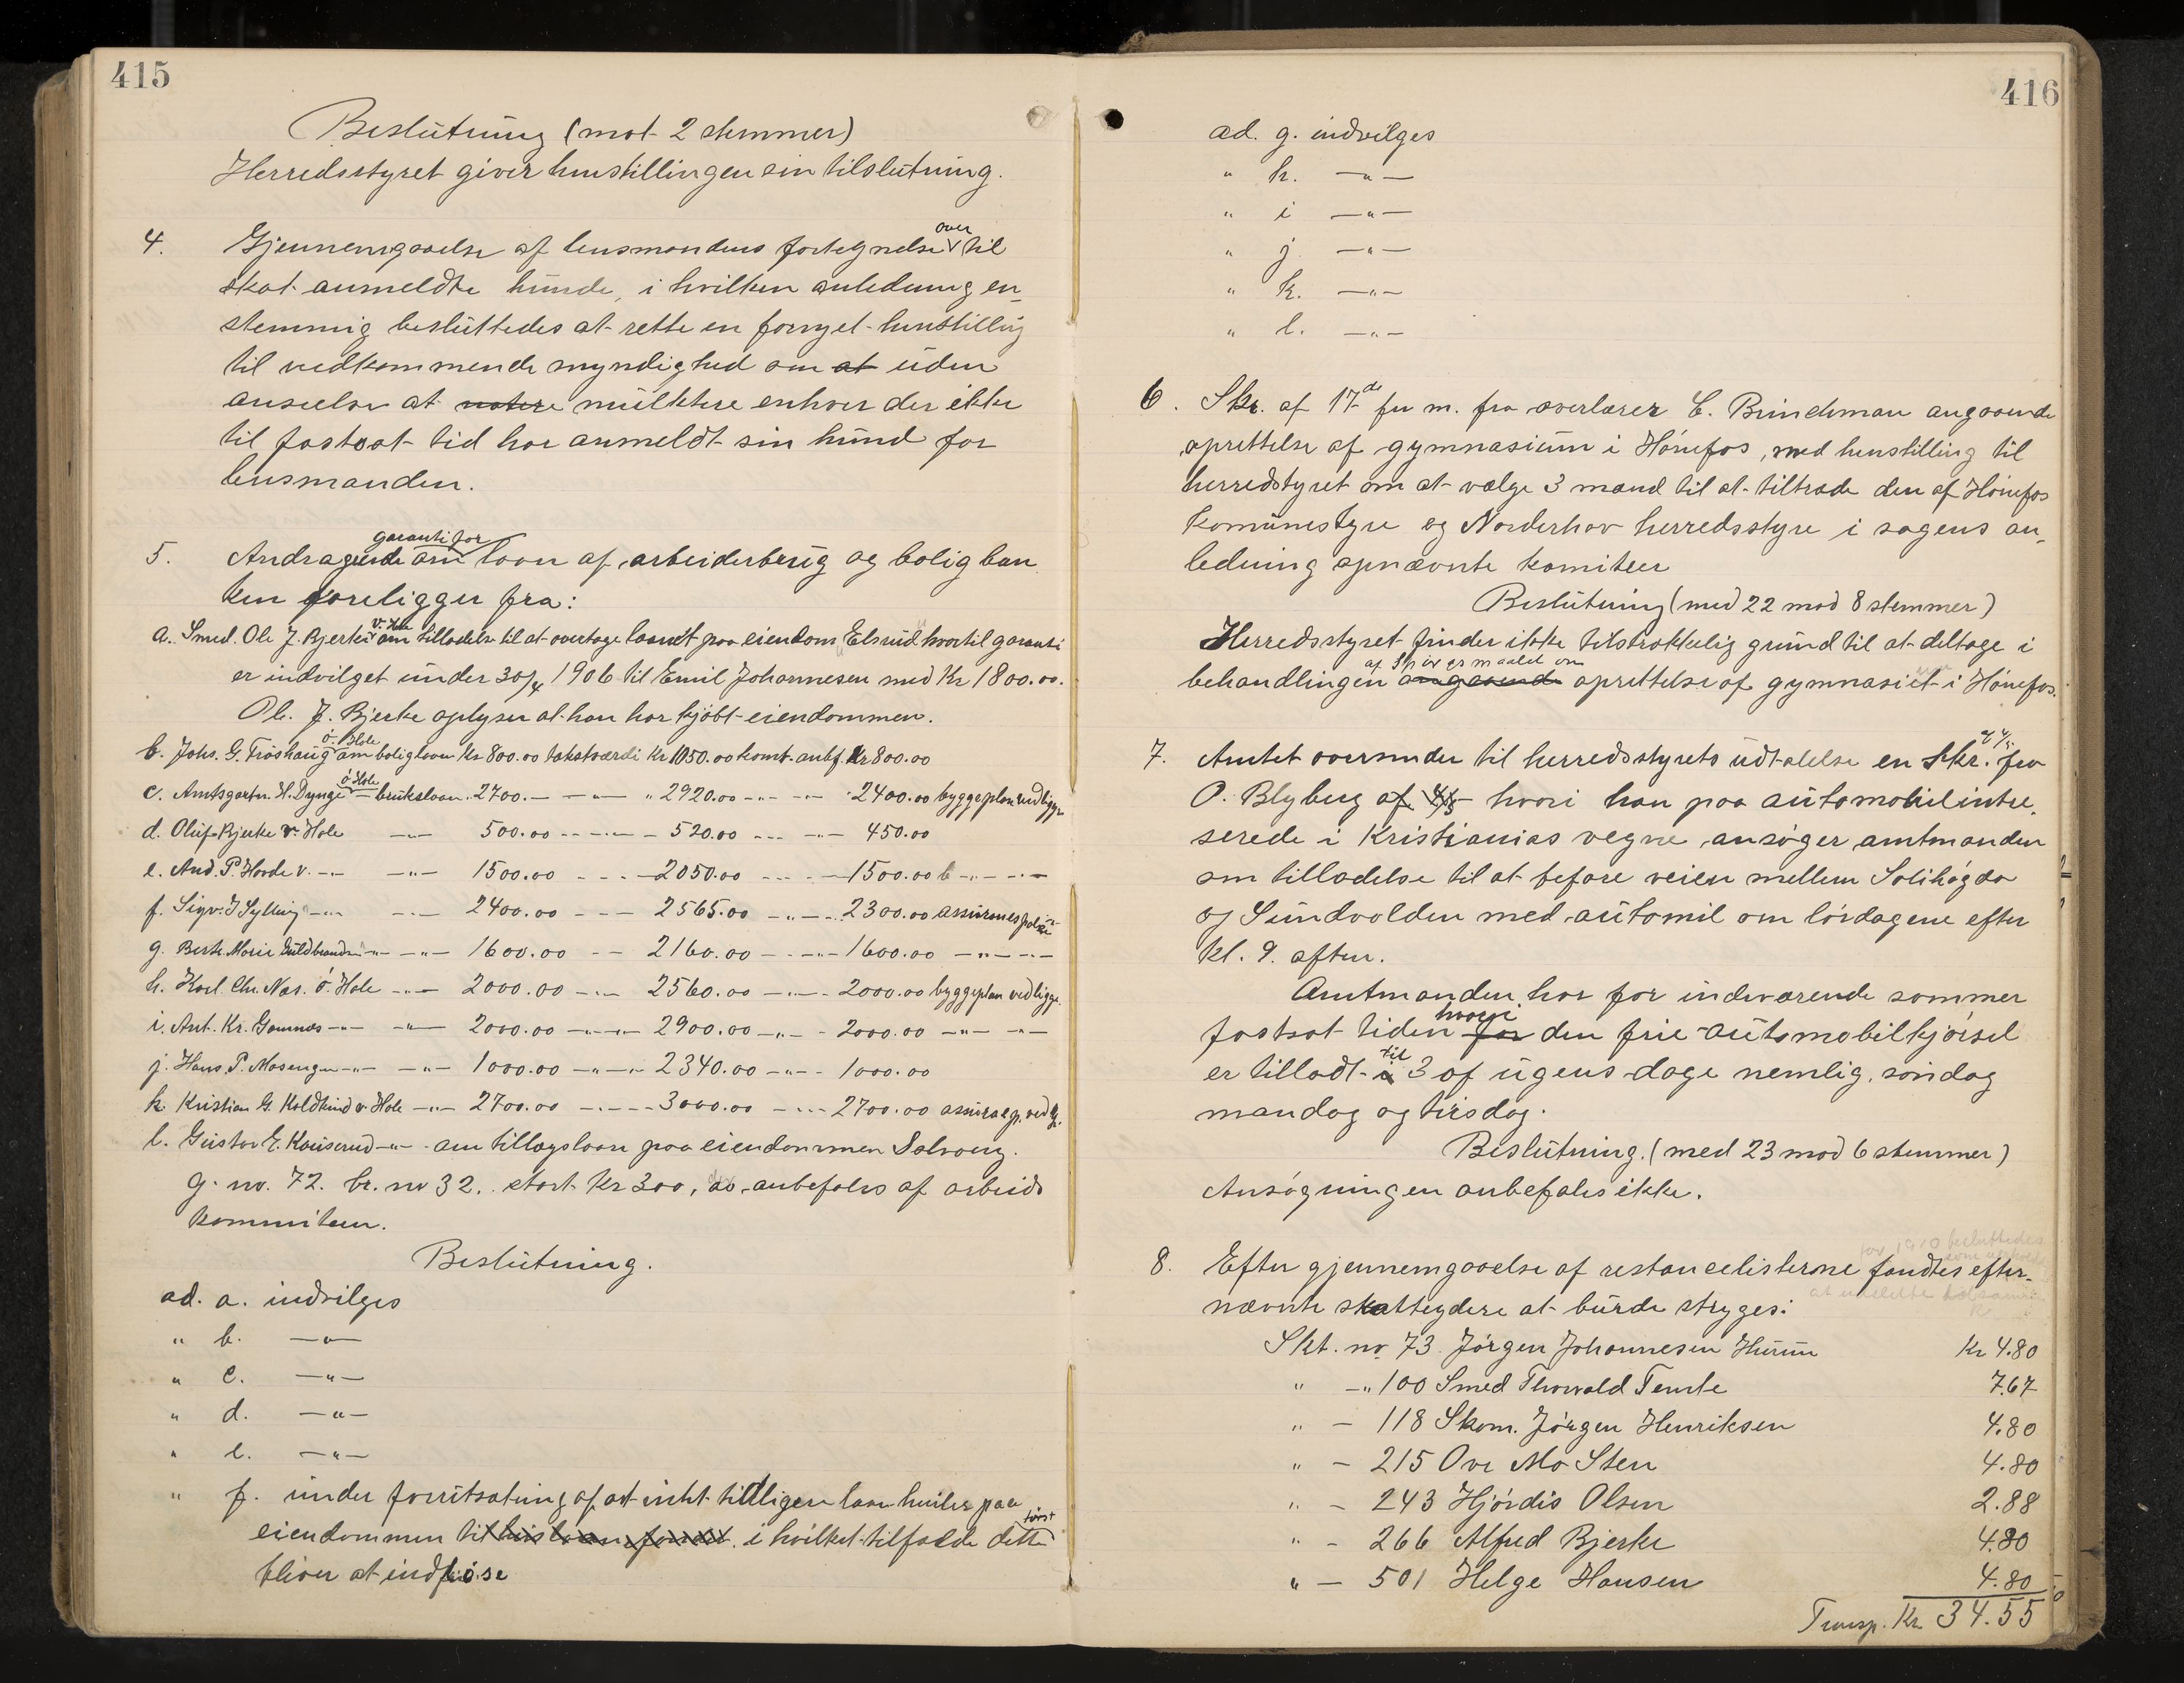 415
Beslutning (mot 2 stemmer)
Herredsstyret giver henstillingen sin tilslutning.
4. Gjennemgaaelse af lensmandens fortegnelse over til
skat anmeldte hunde, i hvilken anledning en-
stemmig besluttedes at rette en fornyet henstilling
til vedkommende myndighed om at uden
anseelse at notere mulktere enhver der ikke
til fastsat tid har anmeldt sin hund for
lensmanden.
5. Andragende om garanti for laan af arbeiderbrug og boligban
ken foreligger fra:
a. Smed. Ole J. Bjerke v. Hole om tilladelse til at overtage laanet paa eiendom Elsrud hvortil garanti
er indvilget under 30/4 1906 til Emil Johannesen med Kr 1800.00.
Ole J. Bjerke oplyser at han har kjøbt eiendommen.
b. Johs. G. Frøshaug ö. Hole om boliglaan Kr 800.00 takstværdi Kr 1050.00 komt. anbf. Kr 800.00
c. Amtsgartn. H. Dynge ö. Hole — brukslaan. 2700.— —"— " 2920.00 -"- -"- 2400.00 byggeplan vedligger
d. Oluf Bjerke v. Hole —"— 500.00 -"- -"- 520.00 -"- -"- 450.00
e. And. P. Horde v. -"- —"— 1500.00 - - - 2050.00 - - - 1500.00 b -"- -"-
f. Sigv. J Sylling -"- —"— 2400.00 - - - 2565.00 -"- -"- 2300.00 assuranespolice
g. Berthe Marie Guldbrandsen -"- —"— 1600.00 - - 2160.00 - -"- 1600.00 —"— -"-
h. Karl Chr. Næs. ö. Hole -"- 2000.00 -"- 2560.00 -"- 2000.00 byggeplan vedligge.
i. Ant. Kr. Gomnæs -"- —"— 2000.00 -"- -"- 2900.00 -"- - 2000.00 -"- -"-
j. Hans P. Mosengen -"- —"— 1000.00 -"- -"- 2340.00 -"- - 1000.00
k. Kristian G. Koldkind v. Hole -"- 2700.00 -"- - - 3000.00 - -"- 2700.00 assurasep. vedl.
l. Gustav E. Kauserud -"- om tillægslaan paa eiendommen Solvang.
g. no. 72. br. no 32, stort kr 300, anbefales af arbeids
kommiteen.
Beslutning.
ad. a. indvilges
" b. —"—
" c. —"—
" d. —"—
" e. —"—
" f. under forutsætning af at intet tidligere laan hviler paa
eiendommen til husbanefondet. i hvilket tilfælde dette først
bliver at indfrise
416
ad. g. indvilges
" h. —"—
" i —"—
" j —"—
" k. —"—
" l. —"—
6. Skr. af 17de fm. fra overlærer C. Brinchman angaaende
oprettelse af gymnasium i Hönefos, med henstilling til
herredstyret om at vælge 3 mænd til at tiltræde den af Hönefos
komunestyre og Norderhov herredsstyre i sagens an-
ledning opnævnte komiteer
Beslutning (med 22 mod 8 stemmer)
Herredsstyret finder ikke tilstrækkelig grund til at deltage i
behandlingen angaaende af spörgsmaalet om oprettelse af gymnasiet i Hönefos.
7. Amtet oversender til herredsstyrets udtalelse en Skr. fra
O. Blyberg af 4/5 hvori han paa automobilintre-
serede i Kristianias vegne, ansöger amtmanden
om tilladelse til at befare veien mellem Solihögda
og Sundvolden med automil om lördagene efter
kl. 9. aften.
Amtmanden har for indeværende sommer
fastsat tiden for hvori den frie automobilkjörsel
er tilladt i til 3 af ugens dage nemlig, söndag
mandag og tirsdag.
Beslutning. (med 23 mod 6 stemmer)
Ansögningen anbefales ikke.
for 1910 besluttedes
8. Efter gjennemgaaelse af restancelisterne fandtes efter-
nævnte skatteydere at burde stryges:
Skt. no. 73. Jörgen Johannesen Hurum Kr 4.80
" -"- 100 Smed Thorvald Temte 7.67
" — 118 Skom. Jörgen Henriksen 4.80
" — 215 Ove Mo Sten 4.80
" - 243 Hjördis Olsen 2.88
" - 266 Alfred Bjerke 4.80
" — 501 Helge Hansen 4.80
Transp. Kr. 34.55